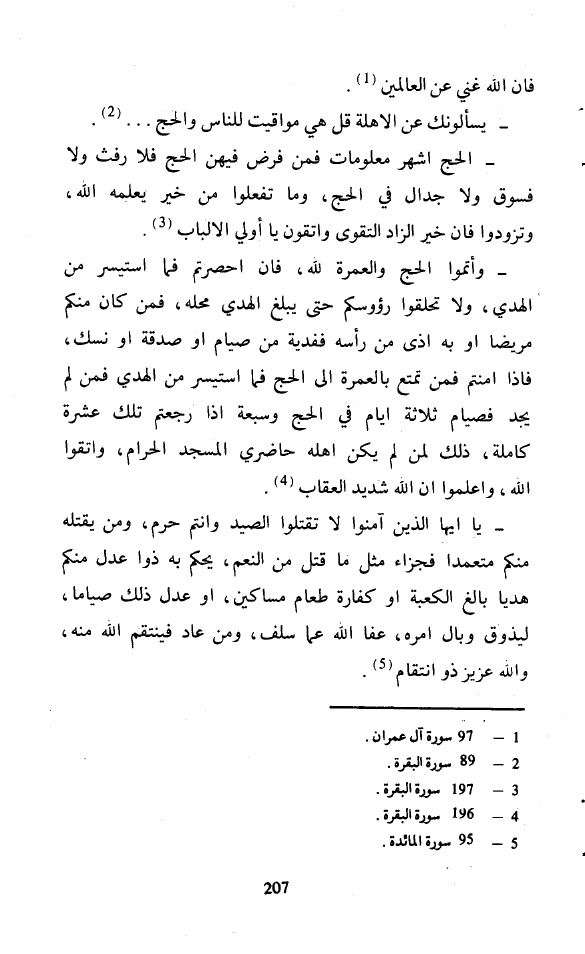 فان الله غني عن العالمين (1) .
– يسألونك عن الاهلة قل هي مواقيت للناس والحج . . . (2) .
– الحج اشهر معلومات فمن فرض فيهن الحج فلا رفث ولا
فسوق ولا جدال في الحج، وما تفعلوا من خير يعلمه الله،
وتزودوا فان خير الزاد التقوى واتقون يا أولي الالباب (3) .
– وأتموا الحج والعمرة لله، فان احصرتم فما استيسر من
الهدي، ولا تحلقوا رؤوسكم حتى يبلغ الهدي محله، فمن كان منكم
مريضا او به اذى من رأسه ففدية من صيام او صدقة او نسك،
فاذا امنتم فمن تمتع بالعمرة الى الحج فما استيسر من الهدي فمن لم
يجد فصيام ثلاثة ايام في الحج وسبعة اذا رجعتم تلك عشرة
كاملة، ذلك لمن لم يكن اهله حاضري المسجد الحرام، واتقوا
الله، واعلموا ان الله شديد العقاب (4) .
– يا ايها الذين آمنوا لا تقتلوا الصيد وانتم حرم، ومن يقتله
منكم متعمدا فجزاء مثل ما قتل من النعم، يحكم به ذوا عدل منكم
هديا بالغ الكعبة او كفارة طعام مساكين، او عدل ذلك صياما،
ليذوق وبال امره، عفا الله عما سلف، ومن عاد فينتقم الله منه،
والله عزيز ذو انتقام (5) .
1 – 97 سورة آل عمران .
2 – 89 سورة البقرة .
3 – 197 سورة البقرة .
4 – 196 سورة البقرة .
5 – 95 سورة المائدة .
207